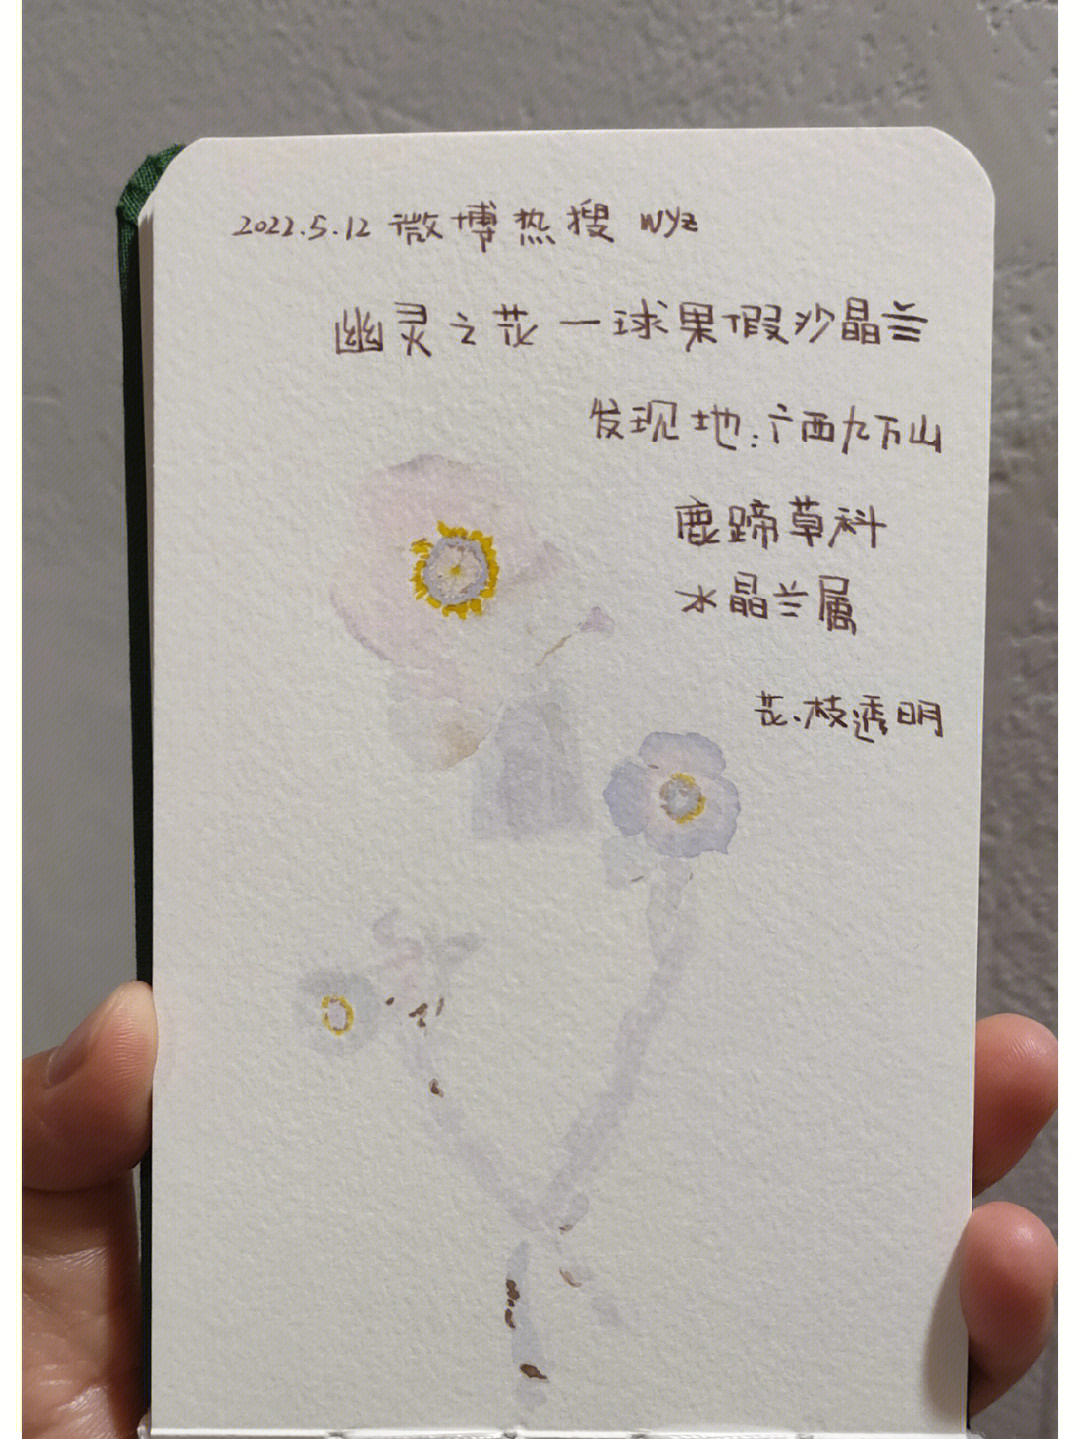 2022.5.12 微博热搜 wyz
幽灵之花一球果假沙晶兰
发现地:广西九万山
鹿蹄草科
水晶兰属
花.枝透明